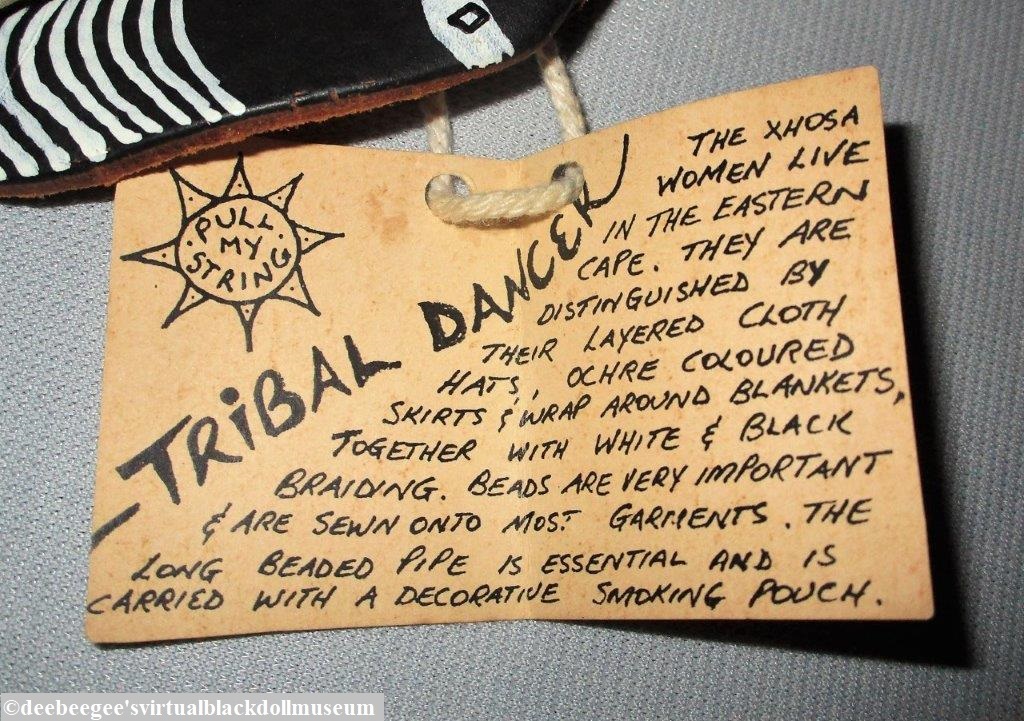 PULL
MY
STRING
TRIBAL DANCER
THE XHOSA
WOMEN LIVE
IN THE EASTERN
CAPE. THEY ARE
DISTINGUISHED BY
THEIR LAYERED CLOTH
HATS, OCHRE COLOURED
SKIRTS & WRAP AROUND BLANKETS,
TOGETHER WITH WHITE & BLACK
BRAIDING. BEADS ARE VERY IMPORTANT
& ARE SEWN ONTO MOST GARMENTS. THE
LONG BEADED PIPE IS ESSENTIAL AND IS
CARRIED WITH A DECORATIVE SMOKING POUCH.
©deebeegee'svirtualblackdollmuseum